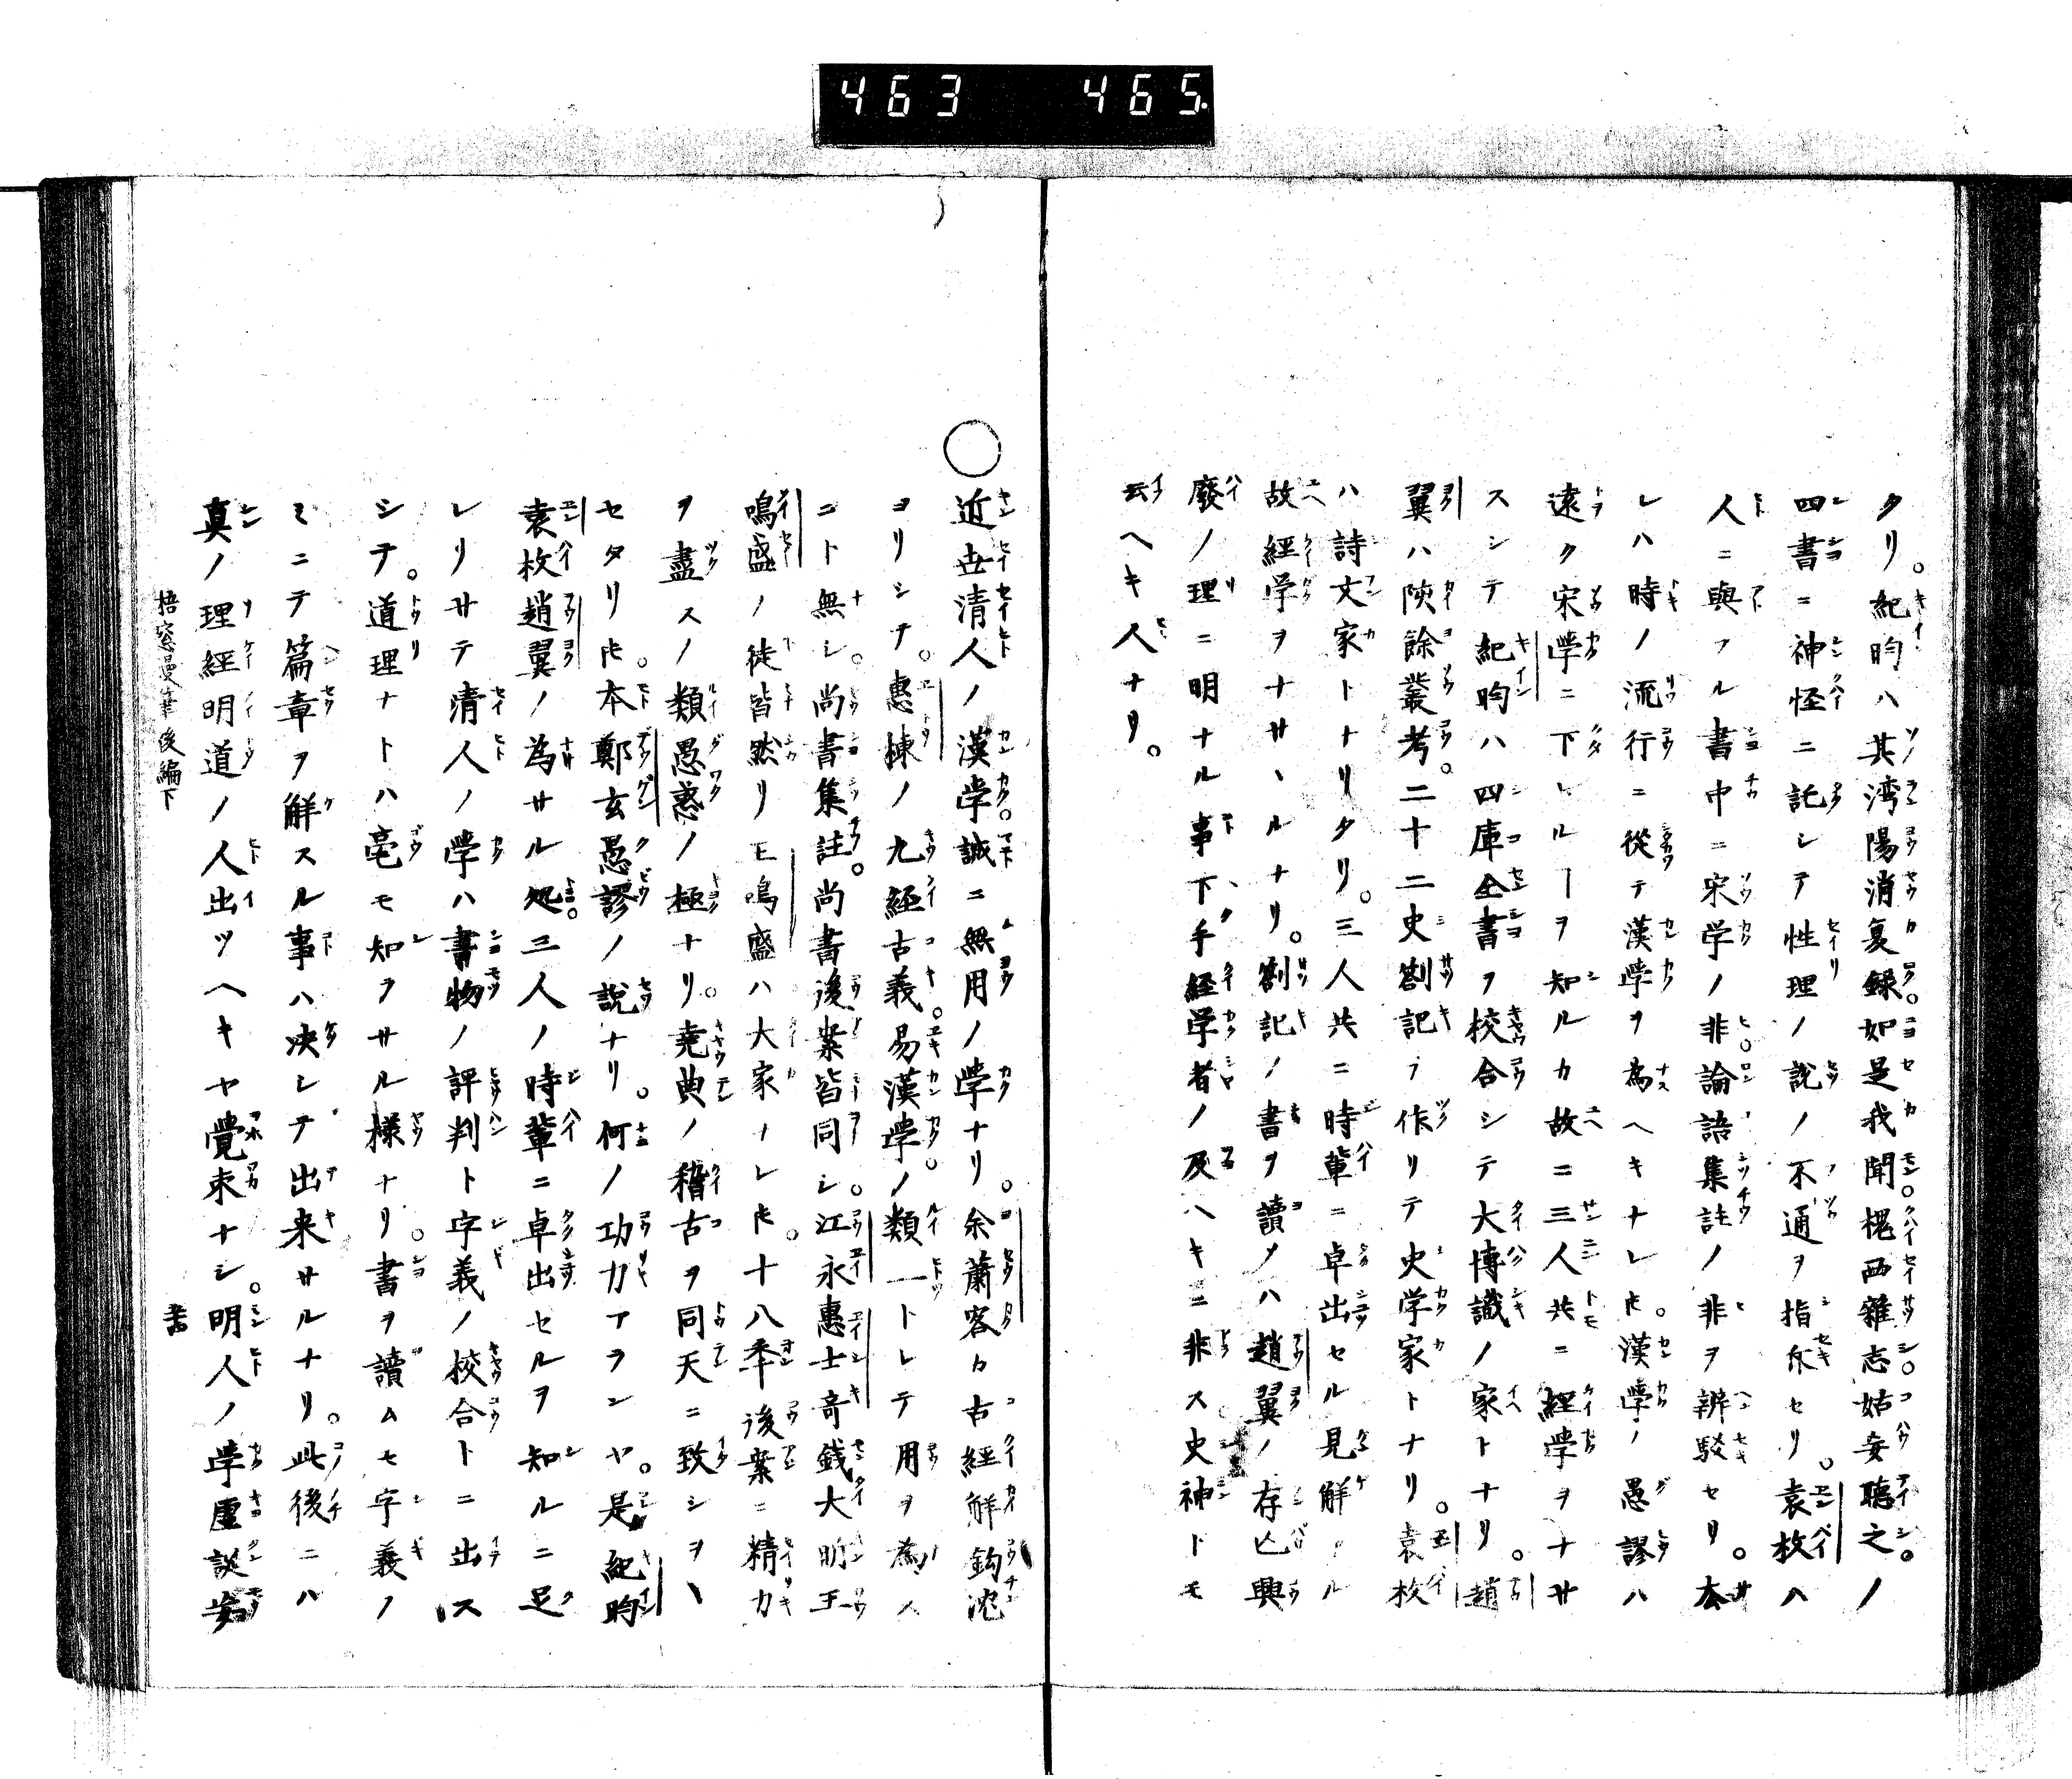 463 465
タリ。紀昀ハ其湾陽消夏録。如是我聞。槐西雜志。姑妄聽之。ノ
四書ニ神怪ニ託シテ性理ノ説ノ不通ヲ指斥セリ。袁枚ハ
人ニ與フル書中ニ宋学ノ非論語集註ノ非ヲ辨駁セリ。本
レハ時ノ流行ニ從テ漢學ヲ為ヘキナレ𪜈。漢學ノ愚謬ハ
遠ク宋學ニ下レルヿヲ知ルカ故ニ三人共ニ経學ヲナサ
スシテ紀昀ハ四庫全書ヲ校合シテ大博識ノ家トナリ。趙
翼ハ陔餘叢考。二十二史劄記ヲ作リテ史学家トナリ。袁枚
ハ詩文家トナリタリ。三人共ニ時輩ニ卓出セル見解アル
故経学ヲナサヽルナリ。劄記ノ書ヲ讀メハ趙翼ノ存亡興
廢ノ理ニ明ナル事下手経学者ノ及ヘキニ非ス史神トモ
云ヘキ人ナリ。
○近世清人ノ漢学。誠ニ無用ノ學ナリ。余蕭客カ古経解鈎沈
ヨリシテ。惠棟ノ九経古義。易漢學。ノ類一トシテ用ヲ為ス
コト無シ。尚書集註。尚書後案皆同シ。江永惠士奇銭大昕王
鳴盛ノ徒皆然リ王鳴盛ハ大家ナレ𪜈。十八年後案ニ精力
ヲ盡スノ類愚惑ノ極ナリ。堯典ノ稽古ヲ同天ニ致シヲヽ
セタリ𪜈。本鄭玄愚謬ノ説ナリ。何ノ功力アランヤ。是紀昀
袁枚趙翼ノ為サル処。三人ノ時輩ニ卓出セルヲ知ルニ足
レリサテ清人ノ學ハ書物ノ評判ト字義ノ校合トニ出ス
シテ。道理ナトハ毫モ知ヲサル様ナリ。書ヲ讀ムモ字義ノ
ミニテ篇章ヲ解スル事ハ决シテ出来サルナリ。此後ニハ
真ノ理經明道ノ人出ツヘキヤ覺束ナシ。明人ノ学虚談妄
梧窓漫筆後編下